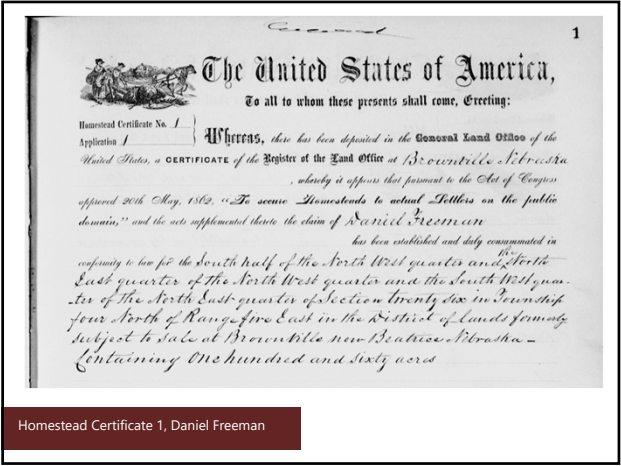 1
The United States of America,
To all to whom these presents shall come, Greeting:
Homestead Certificate No. 1
Application 1
Whereas, there has been deposited in the General Land Office of the
United States, a CERTIFICATE of the Register of the Land Office at Brownville Nebraska
, whereby it appears that pursuant to the Act of Congress
approved 20th May, 1862, "To secure Homesteads to actual Settlers on the public
domain," and the acts supplemental thereto the claim of Daniel Freeman
has been established and duly consummated in
conformity to law for the South half of the North West quarter and the North
East quarter of the North West quarter and the South West quar-
-ter of the North East quarter of Section twenty Six in Township
four North of Range five East in the District of Lands formerly
subject to sale at Brownville now Beatrice Nebraska -
Containing One hundred and Sixty acres
Homestead Certificate 1, Daniel Freeman